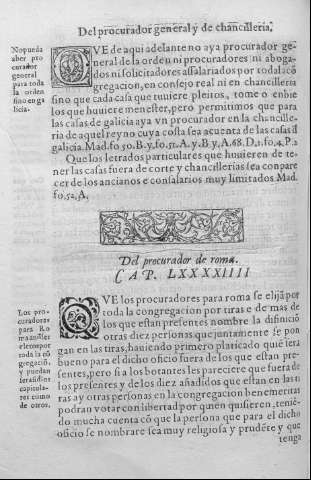 Del procurador general y de chancilleria.
No pueda
aber pro
curador
general
para toda
la orden
sino en ga
licia.
QVE de aqui adelante no aya procurador ge-
neral de la orden ni procuradores ni aboga-
dos ni solicitadores assalariados por toda la cō
gregacion, en consejo real ni en chancilleria
sino que cada casa que tuuiere pleitos, tome o enbie
los que huuiere menester, pero permitimos que para
las casas de galicia aya vn procurador en la chancille-
ria de aquel reyno cuya costa sea acuenta de las casas d̄
galicia. Mad. fo. 50. B. y. fo. 51. A. y B. y, A. 68. D. 2. fo. 4. P. 2
Que los letrados particulares que huuieren de te-
ner las casas fuera de corte y chancillerias sea con pare
cer de los ancianos e con salarios muy limitados Mad.
fo. 52. A.
Del procurador de roma.
CAP. LXXXXIIII
Los pro-
curadores
para Ro
ma an se ele
ger por
toda la cō
gregaciō,
y puedan
ser asi difi
capitula-
res como
de otros.
QVE los procuradores para roma se elijā por
toda la congregacion por tiras e de mas de
los que estan presentes nombre la difinicō
otras diez personas que juntamente se pon
gan en las tiras, hauiendo primero platicado quiē sera
bueno para el dicho oficio fuera de los que estan pre-
sentes, pero si a los botantes les pareciere que fuera de
los presentes y de los diez añadidos que estan en las ti
ras ay otras personas en la congregacion benemeritas
podran votar con libertad por quien quisieren, tenié-
do mucha cuenta cō que la persona que para el dicho
oficio se nombrare sea muy religiosa y prudēte y que
tenga